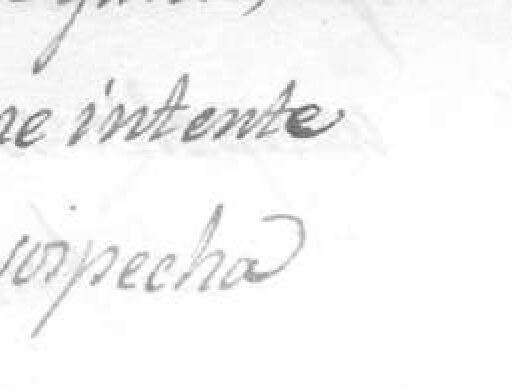 ne intente
sospecha